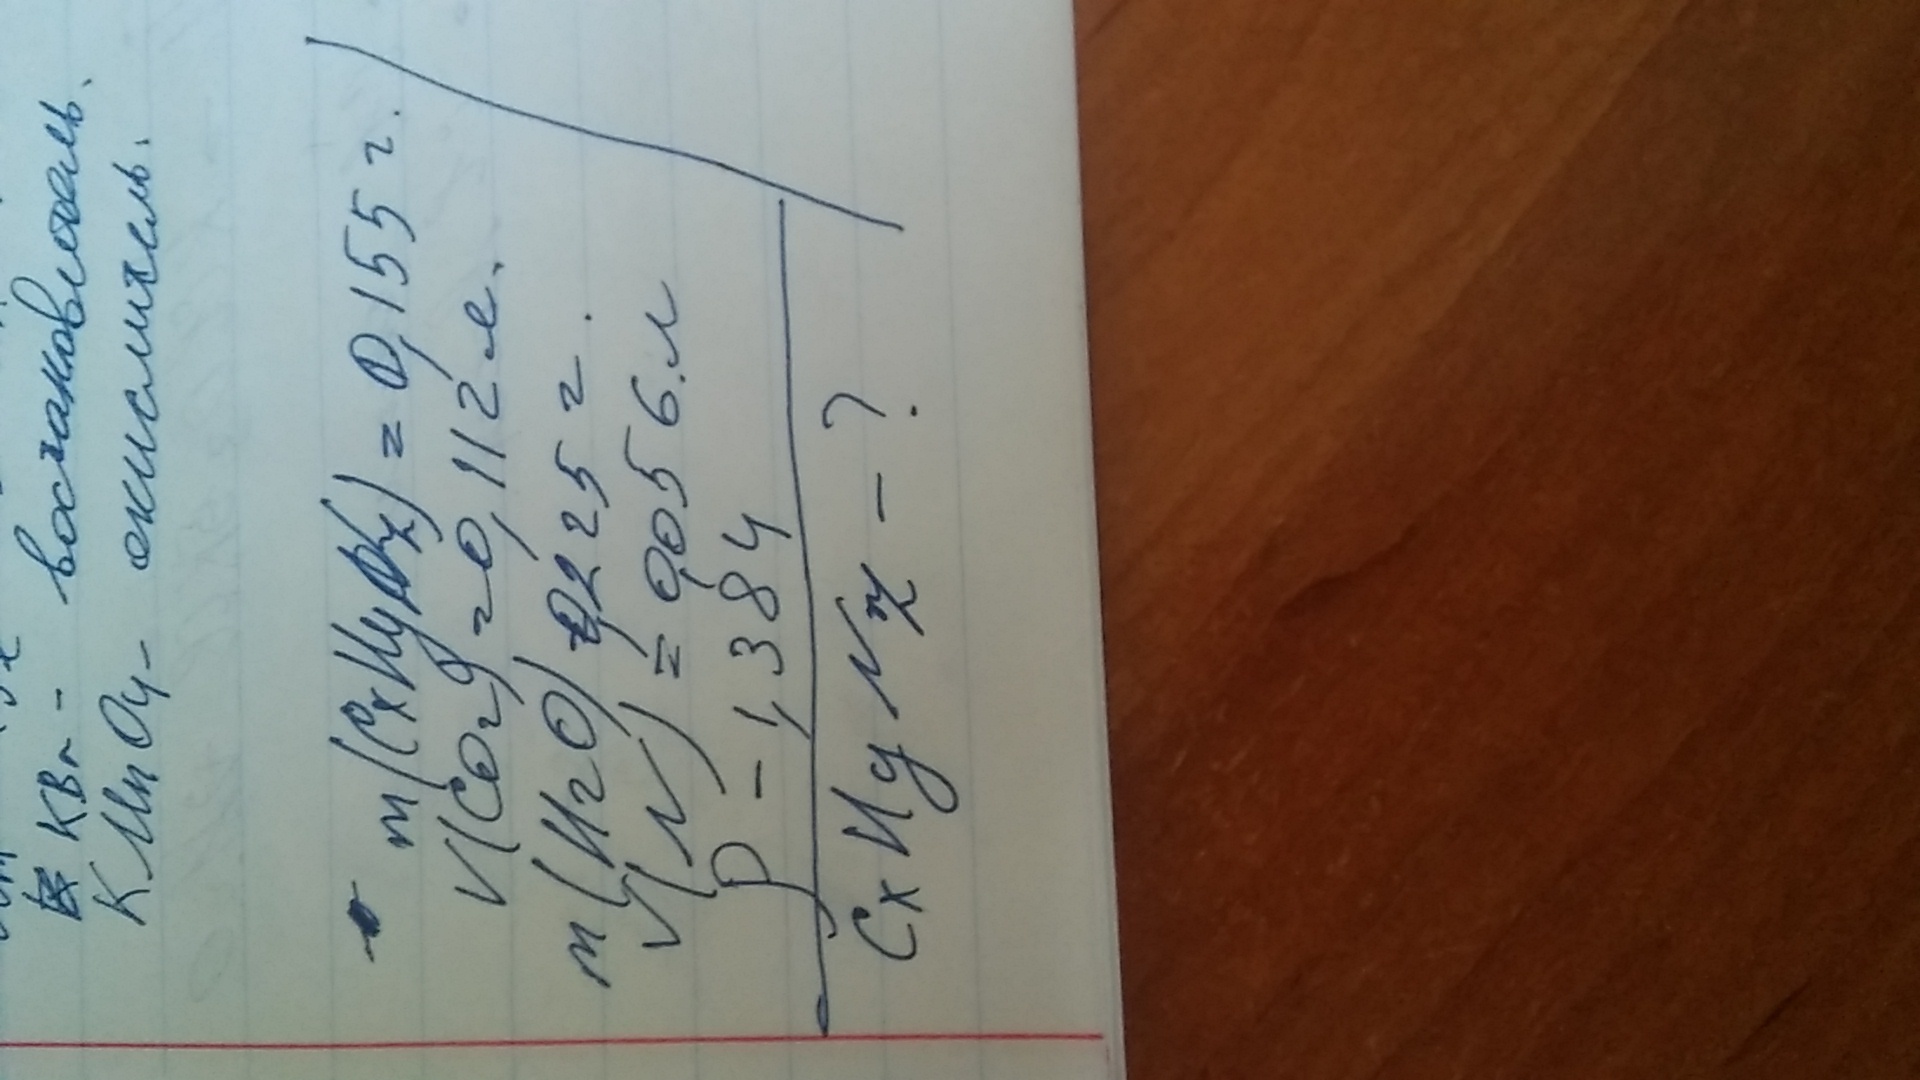 KBr - восстановитель.
KMnO4 - окислитель.
m(CxHyNz) = 0,155 г.
V(CO2) = 0,112 л.
m(H2O) 0,225 г.
V(N) = 0,056 л
D - 1,384
CxHyNz - ?